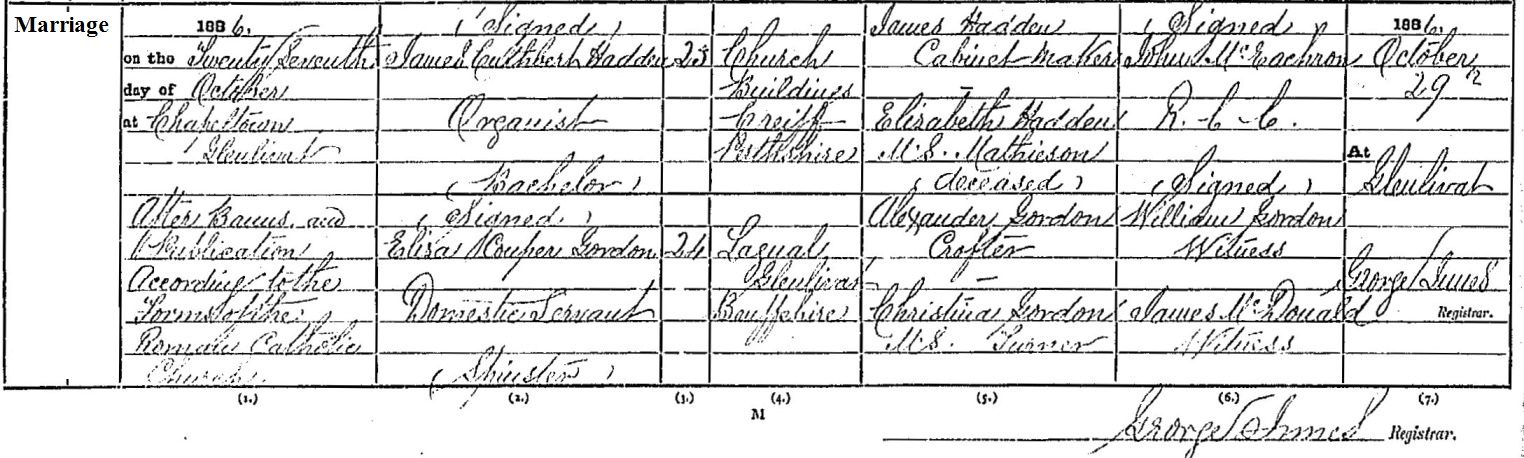 Marriage
1886.
on the Twenty Seventh
day of October
at Chapeltown
Glenlivat
After Banns and
Publication
According to the
Forms of the
Roman Catholic
Church.
(1.)
(Signed)
James Cuthbert Hadden
Organist
(Bachelor)
(Signed)
Eliza Gordon
Domestic Servant
(Spinster)
(2.)
24
(3.)
Church
Buildings
Crieff
Perthshire
Glenlivat
Banffshire
(4.)
M
James Hadden
Cabinet Maker
Elizabeth Hadden
M.S. Mathieson
(deceased)
Alexander Gordon
Crofter
Christina Gordon
M.S. Turner
(5.)
(Signed)
John McEachron
R.C.C.
(Signed)
William Gordon
Witness
James McDonald
Witness
(6.)
1886.
October
29th
At
Glenlivat
George Innes
Registrar.
(7.)
George Innes Registrar.